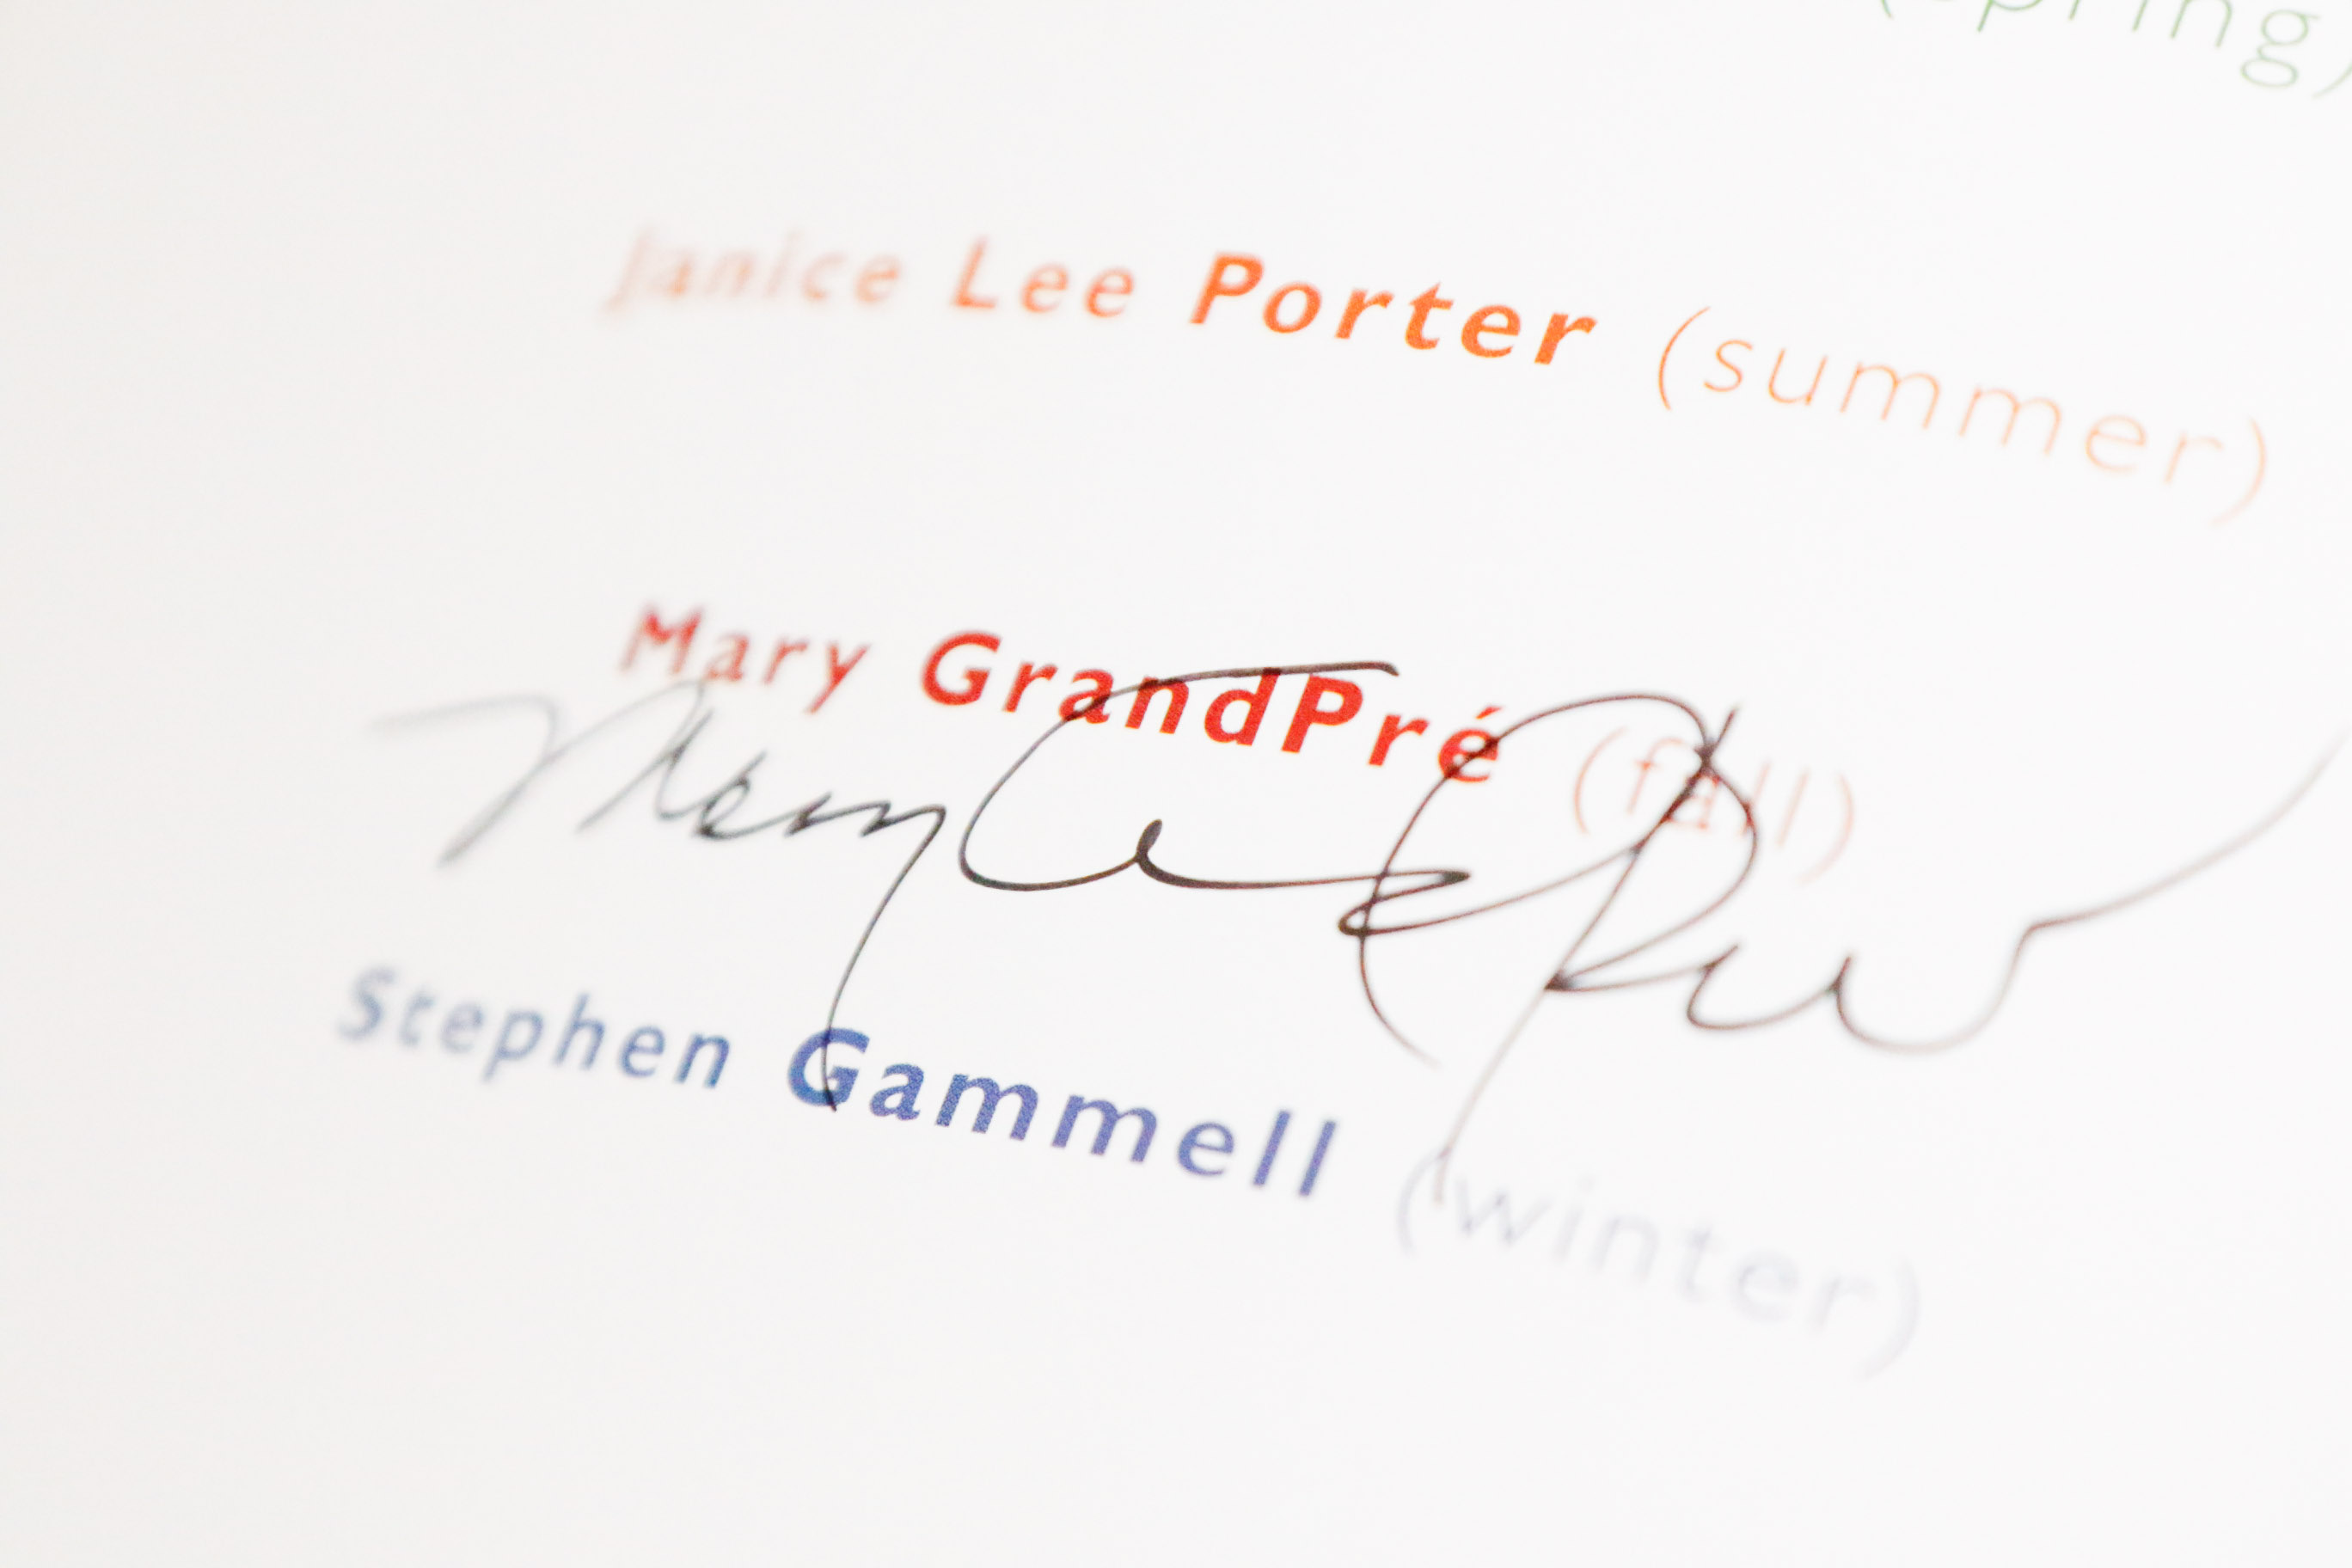 (spring)
Janice Lee Porter (summer)
Mary GrandPré (fall)
Mary GrandPré
Stephen Gammell (winter)